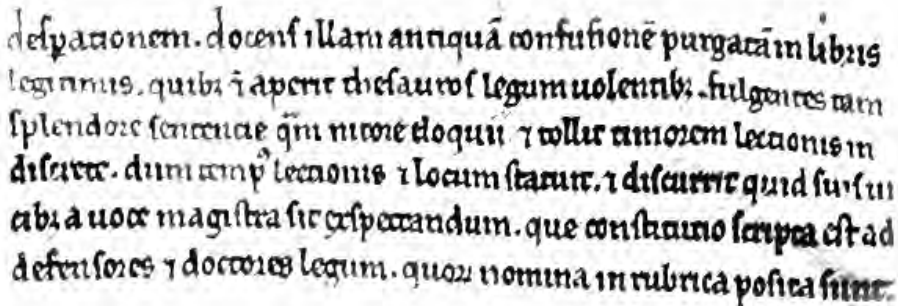 desperationem. docens illam antiquā confusionē purgatā in libris
legitimis. quibꝫ ī aperit thesauros legum uolentibꝫ. fulgentes tam
splendore sentencie q̄m nitore eloquii ⁊ tollit timorem lectionis in
dum tempꝰ lectionis ⁊ locum statuit. ⁊ discutit quid
a uoce magistra sit expectandum. que constitutio scripta est ad
defensores ⁊ doctores legum. quoꝝ nomina in rubrica posita sunt.